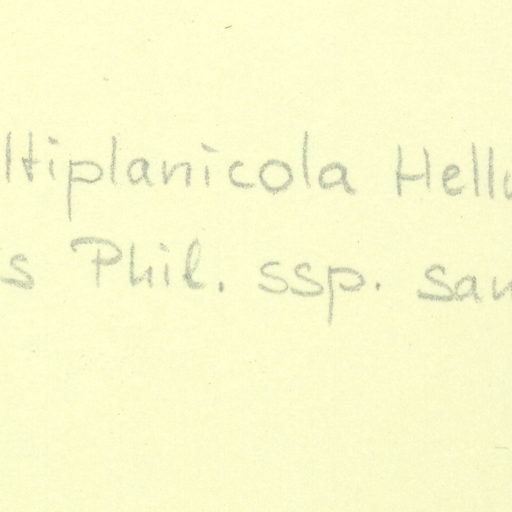 ltiplanicola Hellu
s Phil. ssp. san